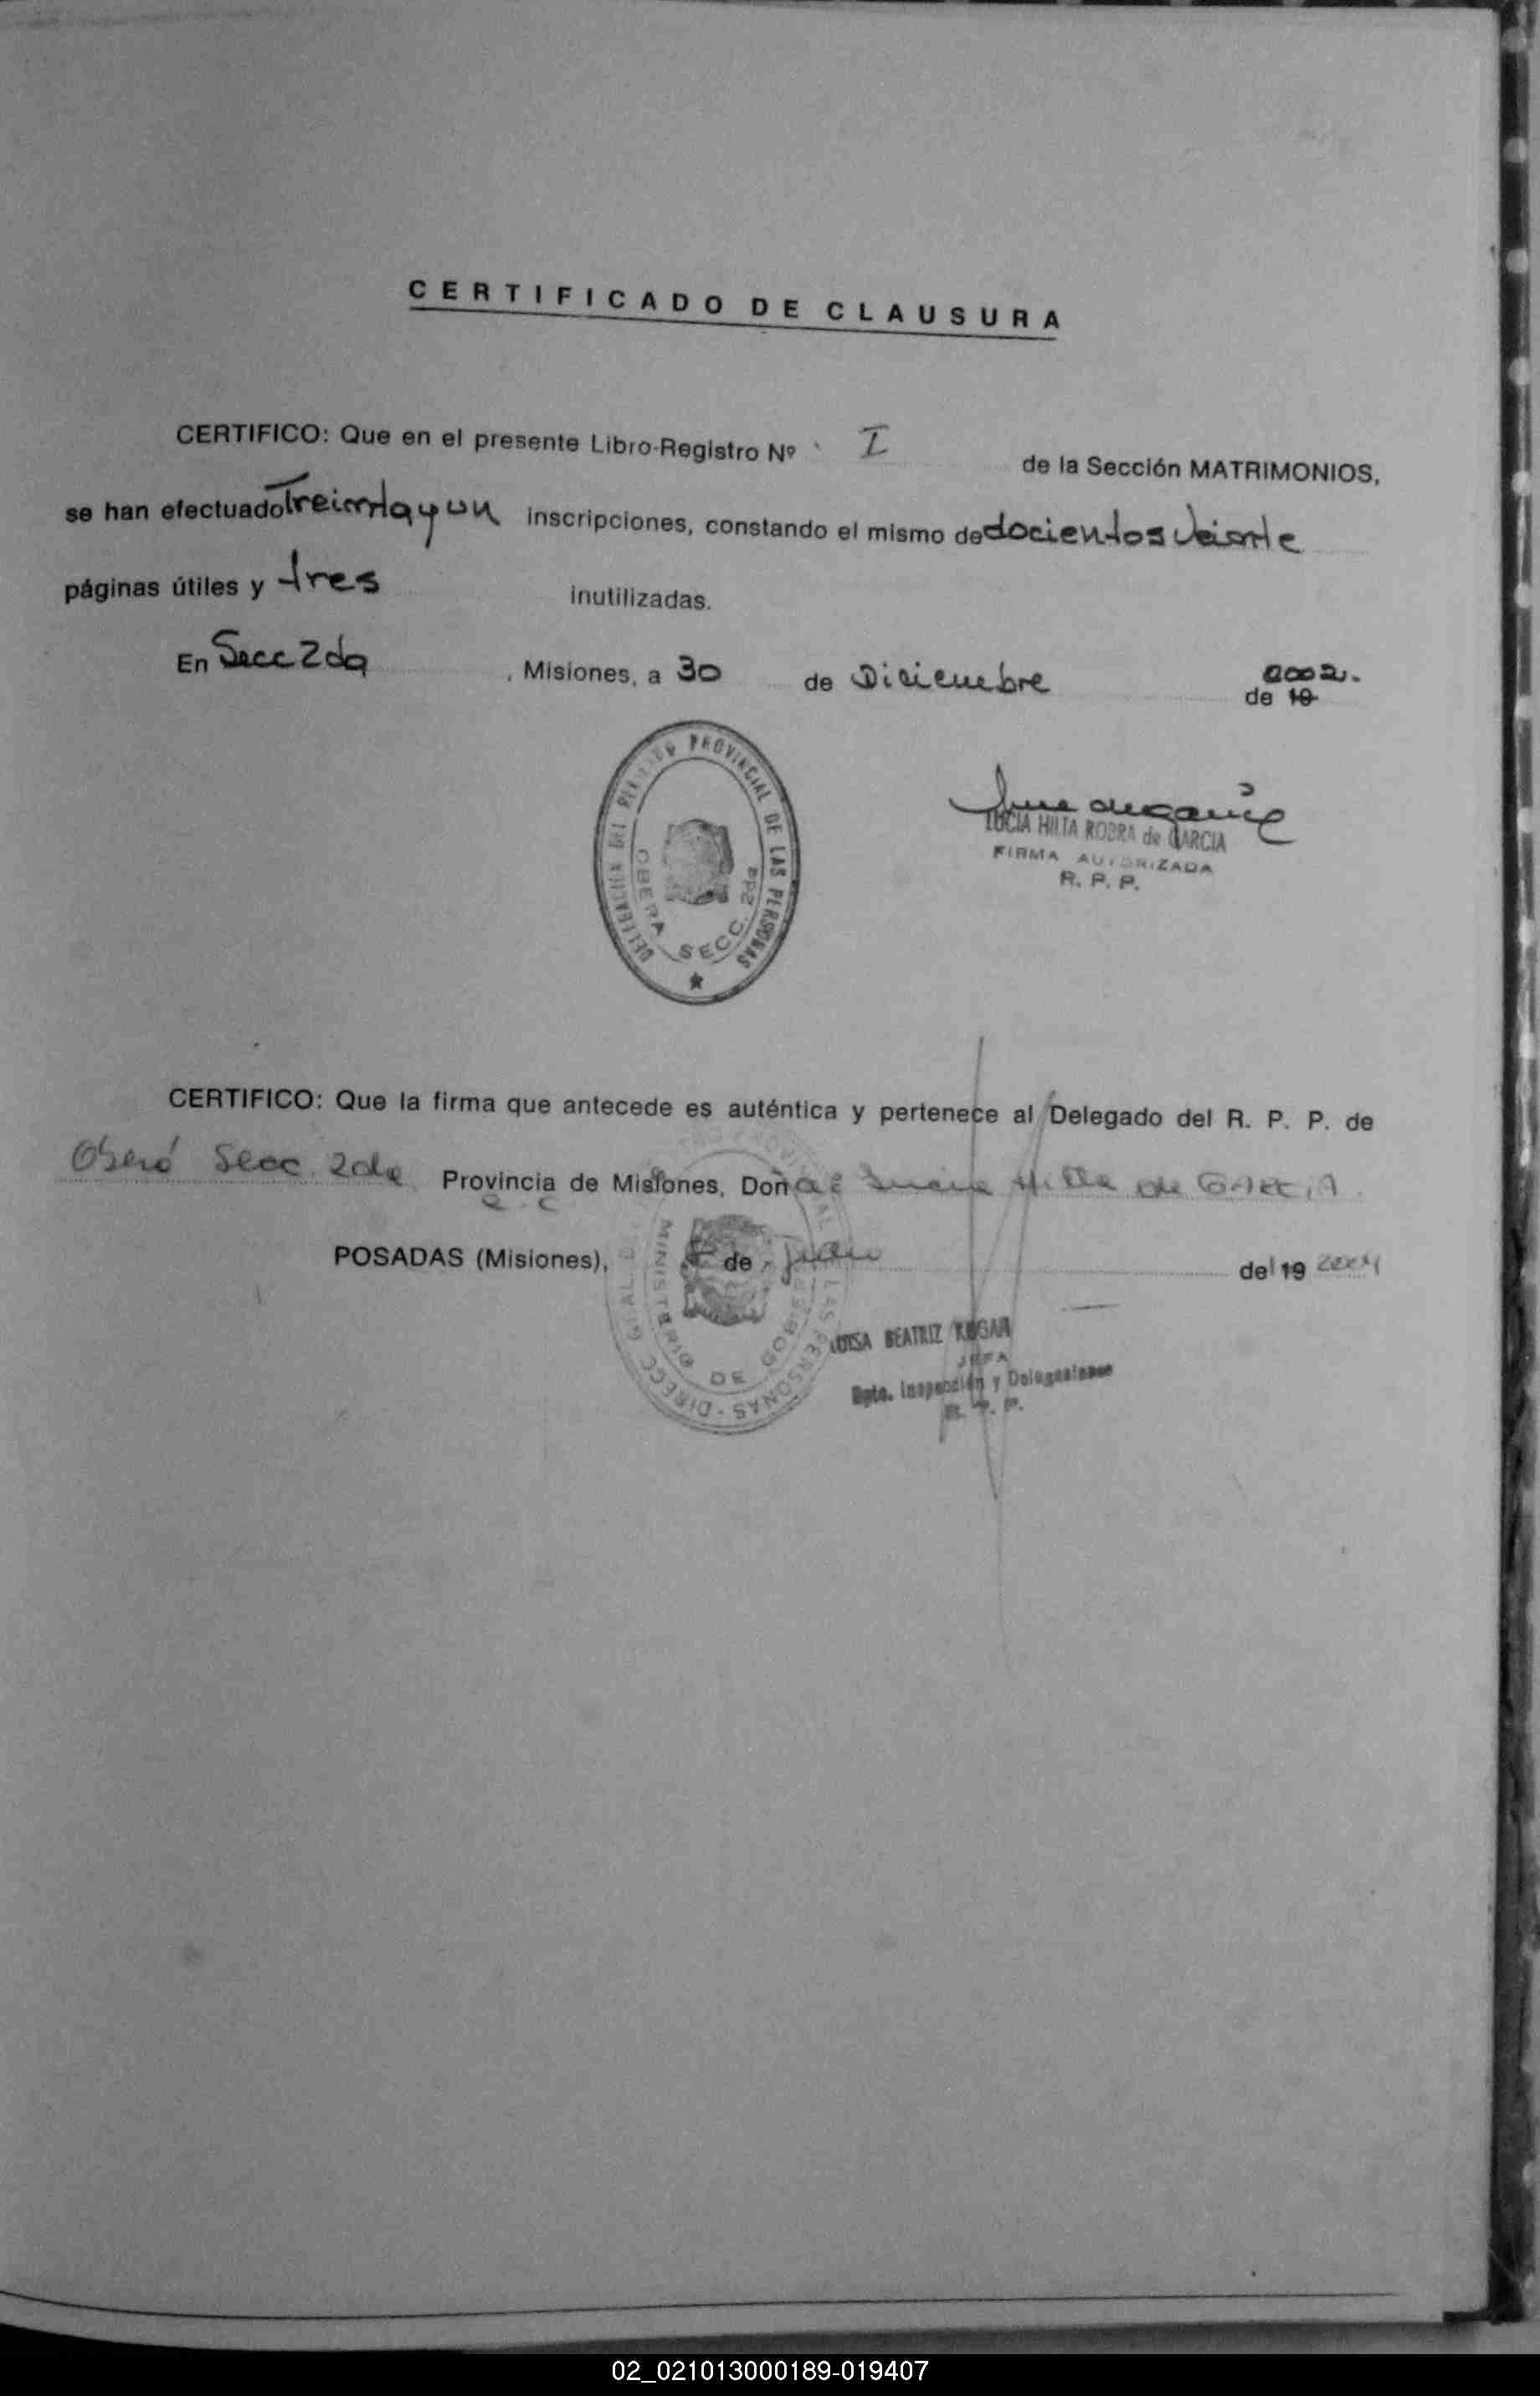 CERTIFICADO DE CLAUSURA
CERTIFICO: Que en el presente Libro-Registro Nº I de la Sección MATRIMONIOS,
se han efectuado Treinta y un inscripciones, constando el mismo de docientos veinte
páginas útiles y tres inutilizadas.
En Secc 2da, Misiones, a 30 de Diciembre de 19 2002.
DELEGACION DEL REGISTRO PROVINCIAL DE LAS PERSONAS
OBERA SECC. 2da
LUCIA HILTA ROBRA de GARCIA
FIRMA AUTORIZADA
R. P. P.
CERTIFICO: Que la firma que antecede es auténtica y pertenece al Delegado del R. P. P. de
Oberá Secc 2da Provincia de Misiones, Doña: Lucia Hilta de GARCIA
POSADAS (Misiones), de del 19 2004
DE LAS PERSONAS - DIRECC
MINISTERIO DE GOBIERNO
LUISA BEATRIZ KRGAR
JEFA
Dpto. Inspección y Delegaciones
R. P. P.
02_021013000189-019407